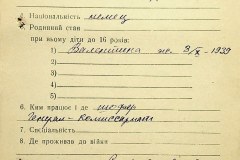 2. Національність немец
3. Родинний стан
при ньому діти до 16 років:
1) Валентина 3/X - 1939
2)
3)
4)
5)
6. Ким працює і де шофер
Генерал-комиссариат
7. Спеціальність
8. Де проживав до війни